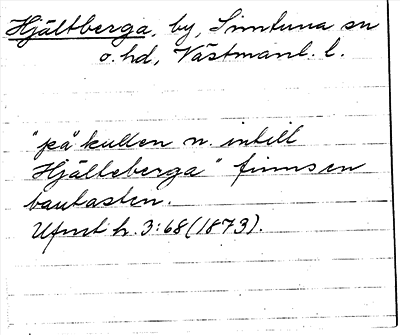 Hjältberga, by, Simtuna sn
o. hd, Västmanl. l.
"på kullen n. intill
Hjälteberga" finns en
bautasten.
Ufmt h. 3:68 (1873).